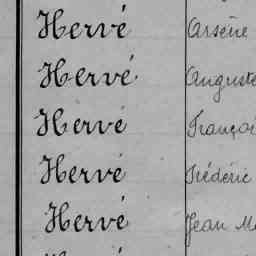 Hervé Arsène
Hervé Auguste
Hervé
Hervé Frédéric
Hervé Jean